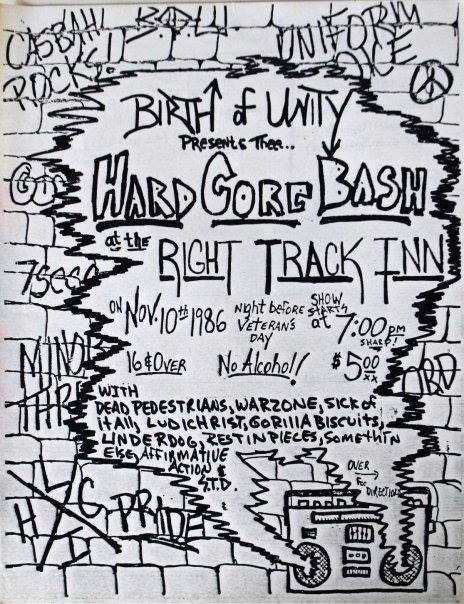 CASBAH
ROCKS!
B.O.U.
UNIFORM
BIRTH of UNITY
Presents Thee..
HARD CORE BASH
at the
RIGHT TRACK INN
ON NOV. 10th 1986
Night before
VETERAN'S
DAY
SHOW
STARTS
at 7:00 pm
SHARP!
16 & OVER
No Alcohol!
$5.00
XX
WITH
DEAD PEDESTRIANS, WARZONE, SICK of
it All, LUDICHRIST, GORILLA BISCUITS,
UNDERDOG, REST IN PIECES, SOMETHIN
ELSE, AFFIRMATIVE
ACTION &
S.T.D.
OVER
For
DIRECTIONS
PRIDE